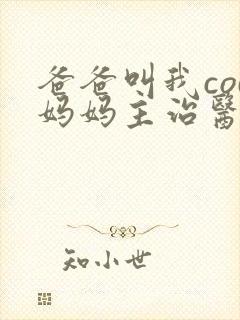 爸爸叫我co
妈妈主治醫
知小世